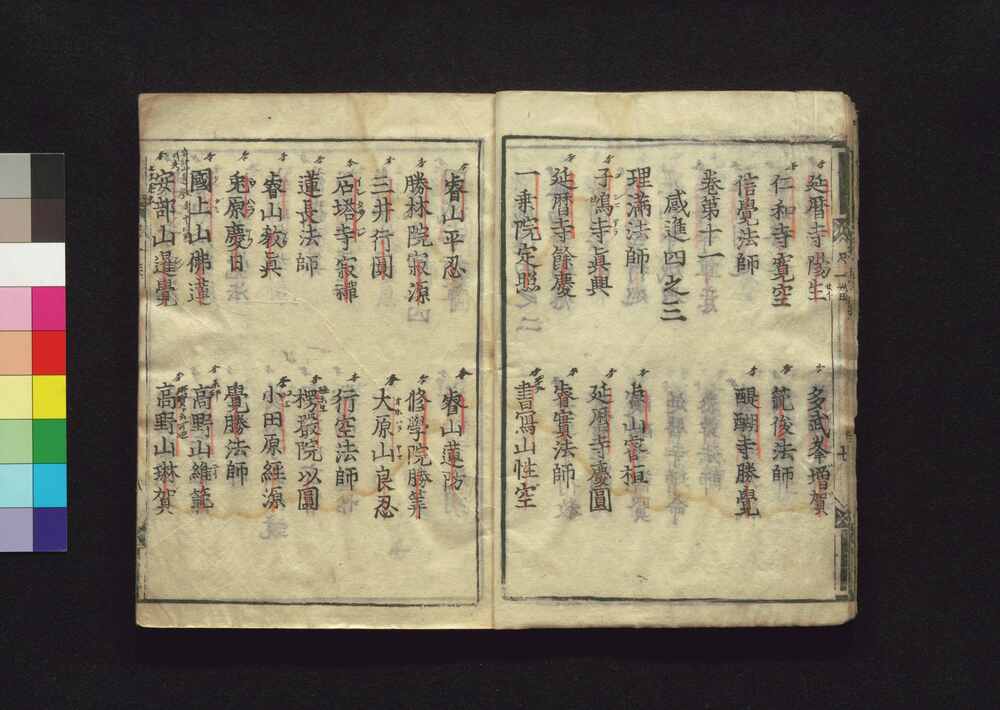 延暦寺陽生　多武峯増賀
仁和寺寛空　範俊法師
信覺法師　醍醐寺勝覺
卷第十一
感進四之三
理滿法師
子嶋寺眞興　延暦寺慶圓
延暦寺餘慶　睿實法師
一乗院定照　書寫山性空
睿山平忍　睿山蓮防
勝林院寂源　修學院勝筭
三井行圓　大原山良忍
石塔寺寂禪　行空法師
蓮長法師　楞嚴院以圓
睿山教眞　小田原經源
兎原慶日　覺勝法師
國上山佛蓮　高野山維範
安部山暹覺　高野山琳賀